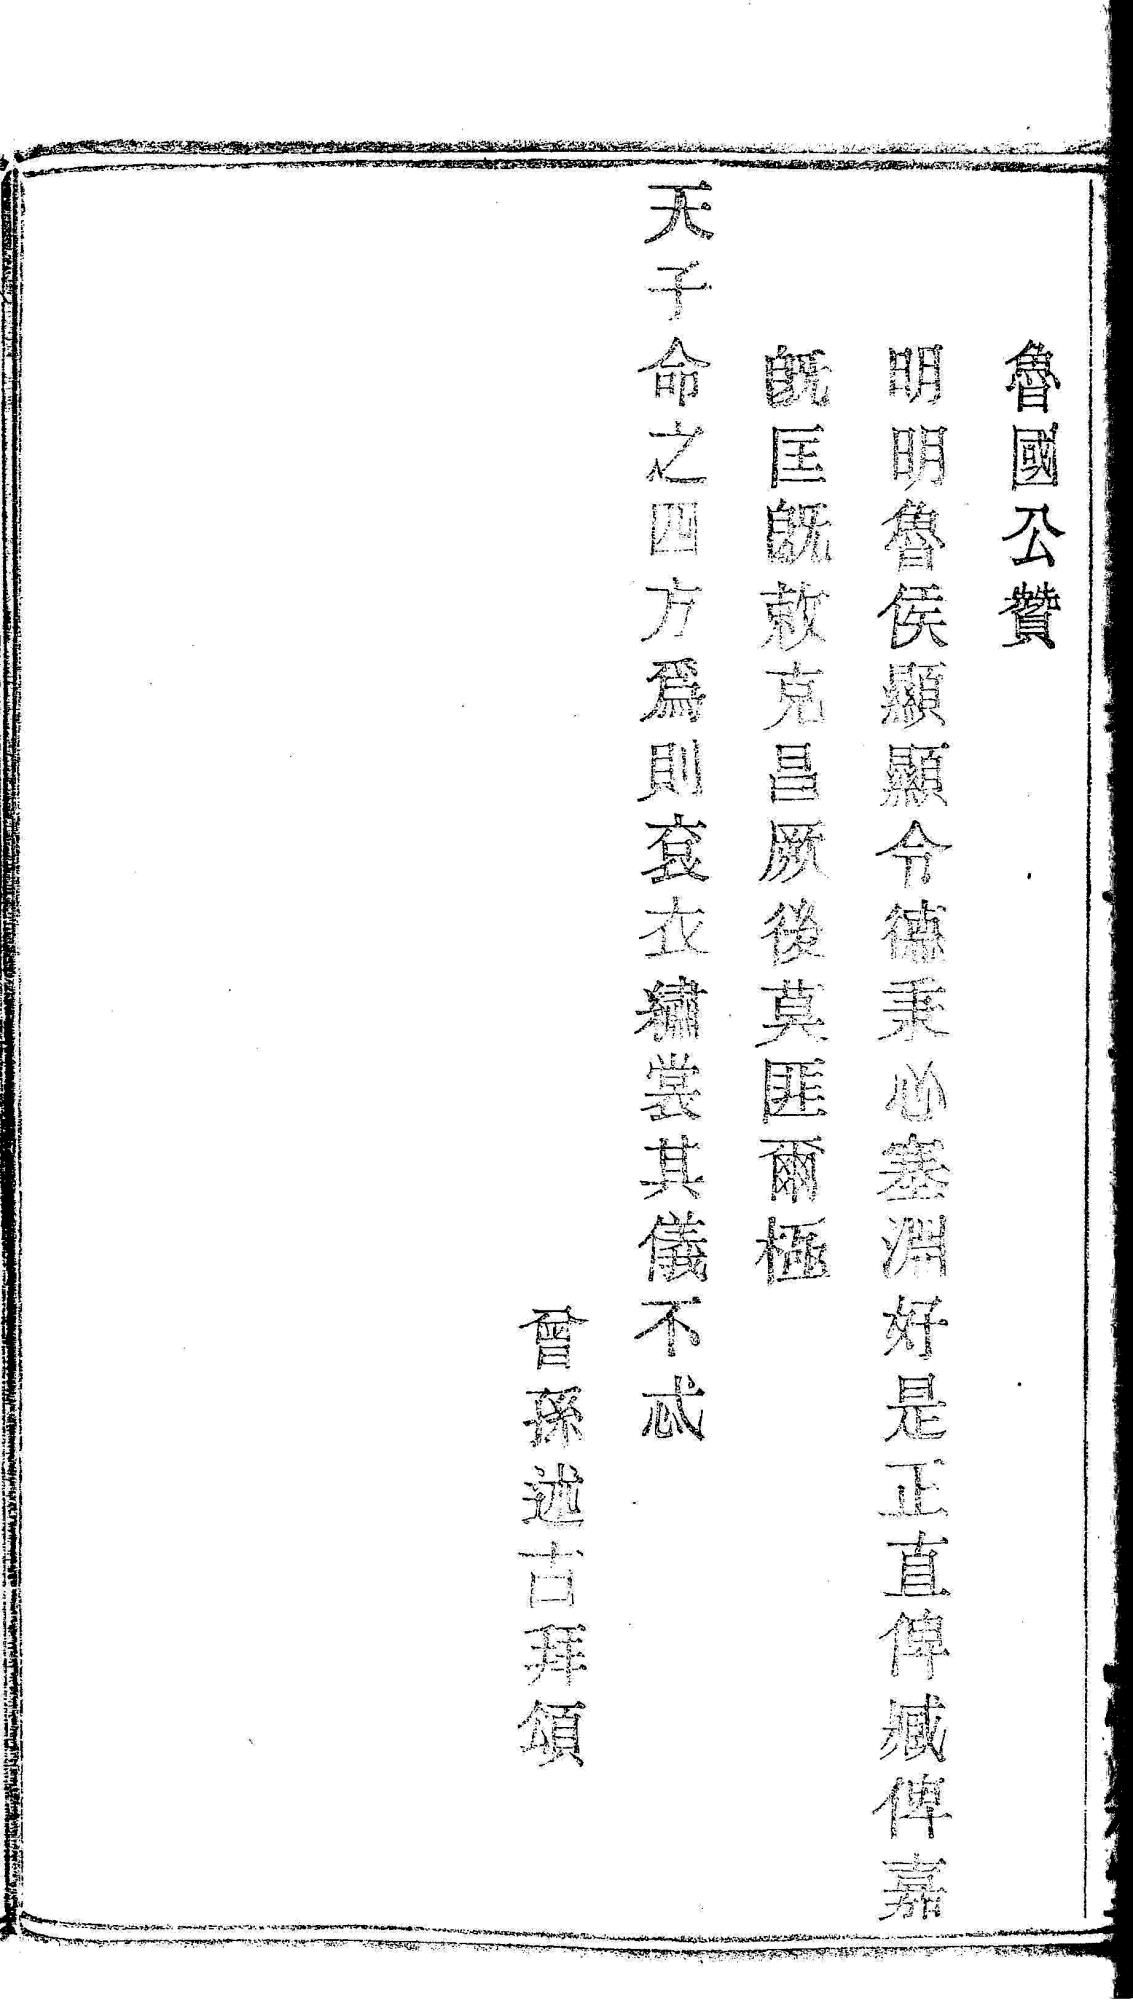 魯國公贊
明明魯侯顯顯令德秉心塞淵好是正直俾臧俾嘉
既匡既敕克昌厥後莫匪爾極
天子命之四方爲則袞衣繡裳其儀不忒
曾孫述古拜頌